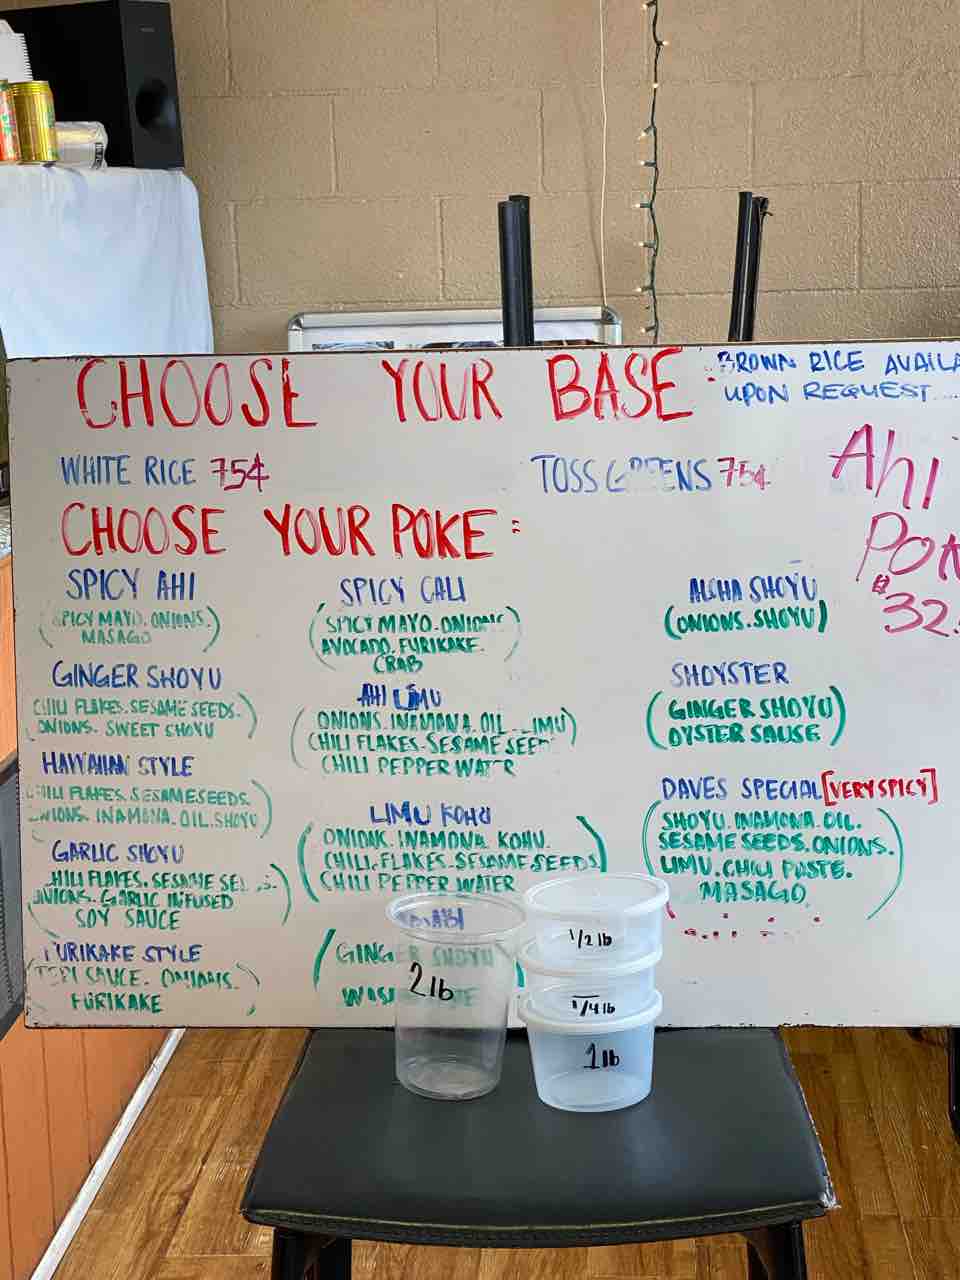 CHOOSE YOUR BASE
BROWN RICE
UPON REQUEST....
WHITE RICE 75¢
TOSS GREENS 75¢
Ahi
32.
CHOOSE YOUR POKE:
SPICY AHI
(SPICY MAYO. ONIONS.
MASAGO)
GINGER SHOYU
(CHILI FLAKES. SESAME SEEDS.
ONIONS. SWEET SHOYU)
HAWAIIAN STYLE
(CHILI FLAKES. SESAME SEEDS.
ONIONS. INAMONA. OIL. SHOYU)
GARLIC SHOYU
CHILI FLAKES. SESAME
ONIONS. GARLIC INFUSED
SOY SAUCE)
FURIKAKE STYLE
(TERI SAUCE. ONIONS.
FURIKAKE)
SPICY CALI
(SPICY MAYO. ONIONS
AVOCADO. FURIKAKE.
CRAB)
AHI LIMU
(ONIONS. INAMONA. OIL. LIMU)
CHILI FLAKES. SESAME SEED
CHILI PEPPER WATER
LIMU KOHU
(ONIONS. INAMONA. KOHU.
CHILI. FLAKES. SESAME SEEDS
CHILI PEPPER WATER)
(GINGER SHOYU
ALOHA SHOYU
(ONIONS. SHOYU)
SHOYSTER
(GINGER SHOYU
OYSTER SAUSE)
DAVES SPECIAL [VERY SPICY]
(SHOYU. INAMONA. OIL.
SESAME SEEDS. ONIONS.
LIMU. CHILI PASTE.
MASAGO)
2 lb
1/2 lb
1/4 lb
1 lb